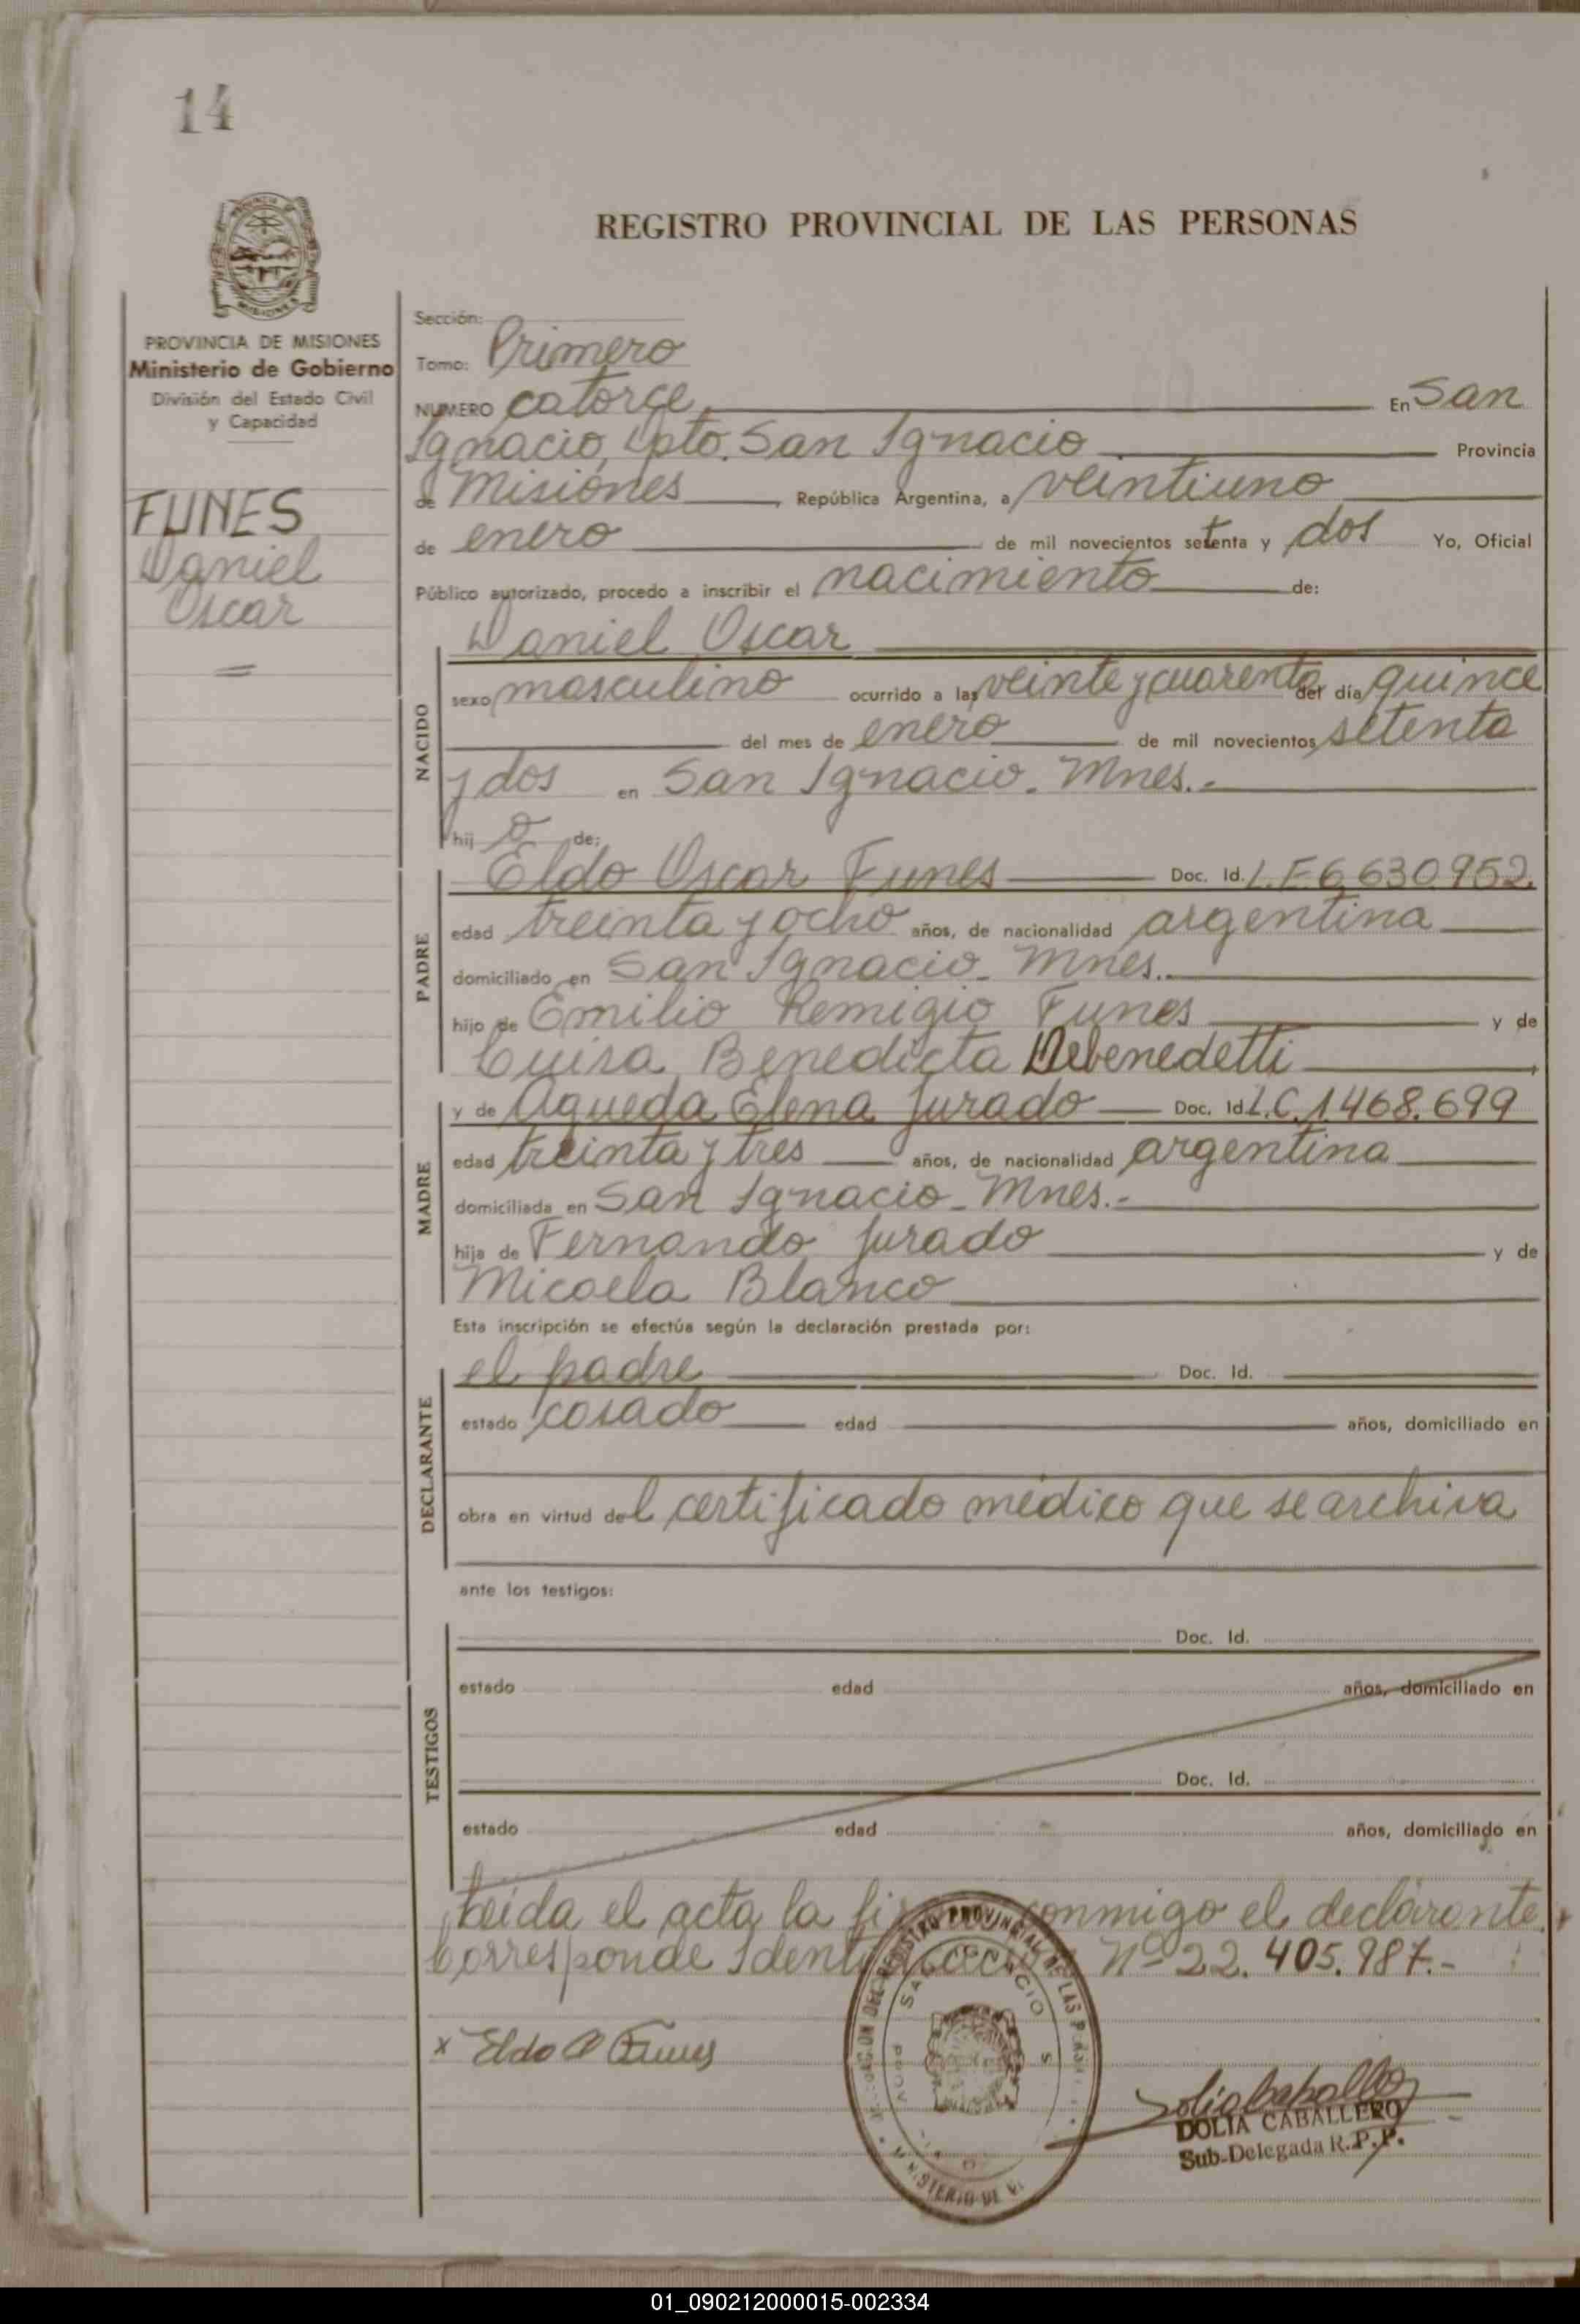 14
REGISTRO PROVINCIAL DE LAS PERSONAS
PROVINCIA DE MISIONES
Ministerio de Gobierno
División del Estado Civil
y Capacidad
FUNES
Daniel
Oscar
Sección:
Tomo: Primero
NUMERO catorce En San
Ignacio, Dpto. San Ignacio Provincia
de Misiones, República Argentina, a veintiuno
de enero de mil novecientos setenta y dos Yo, Oficial
Público autorizado, procedo a inscribir el nacimiento de:
NACIDO
Daniel Oscar
sexo masculino ocurrido a las veinte y cuarenta del día quince
del mes de enero de mil novecientos setenta
y dos en San Ignacio. Mnes.-
hij o de:
PADRE
Eldo Oscar Funes Doc. Id. L.E 6.630.952
edad treinta y ocho años, de nacionalidad argentina
domiciliado en San Ignacio - Mnes.-
hijo de Emilio Remigio Funes y de
Luisa Benedicta Debenedetti
MADRE
y de Agueda Elena Jurado Doc. Id. L.C. 1468.699
edad treinta y tres años, de nacionalidad argentina
domiciliada en San Ignacio - Mnes.-
hija de Fernando Jurado y de
Micaela Blanco
Esta inscripción se efectúa según la declaración prestada por:
DECLARANTE
el padre Doc. Id.
estado casado edad años, domiciliado en
obra en virtud del certificado médico que se archiva
ante los testigos:
TESTIGOS
Doc. Id.
estado edad años, domiciliado en
Doc. Id.
estado edad años, domiciliado en
Leída el acta la conmigo el declarante.
Corresponde Nº 22.405.987.-
x Eldo O Funes
DOLIA CABALLERO
Sub-Delegada R.P.P.
01_090212000015-002334